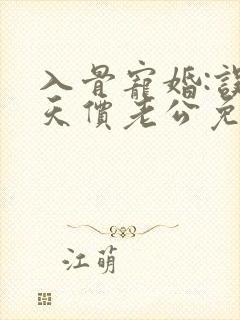 入骨寵婚:誤
天價老公免
江萌